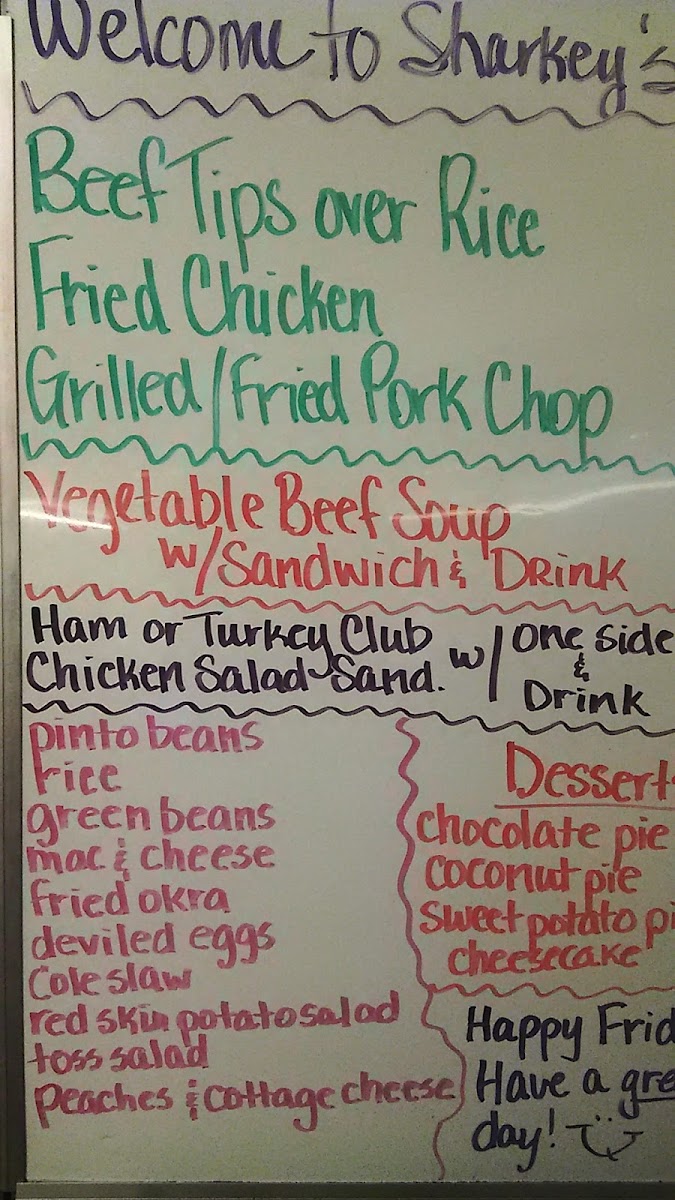 Welcome to Sharkey's
Beef Tips over Rice
Fried Chicken
Grilled/Fried Pork Chop
Vegetable Beef Soup
w/Sandwich & Drink
Ham or Turkey Club
Chicken Salad Sand.
w/ one side
&
Drink
pinto beans
rice
green beans
mac & cheese
fried okra
deviled eggs
Cole slaw
red skin potato salad
toss salad
Peaches & cottage cheese
Dessert
chocolate pie
coconut pie
sweet potato pi
cheesecake
Happy Frid
Have a gre
day!